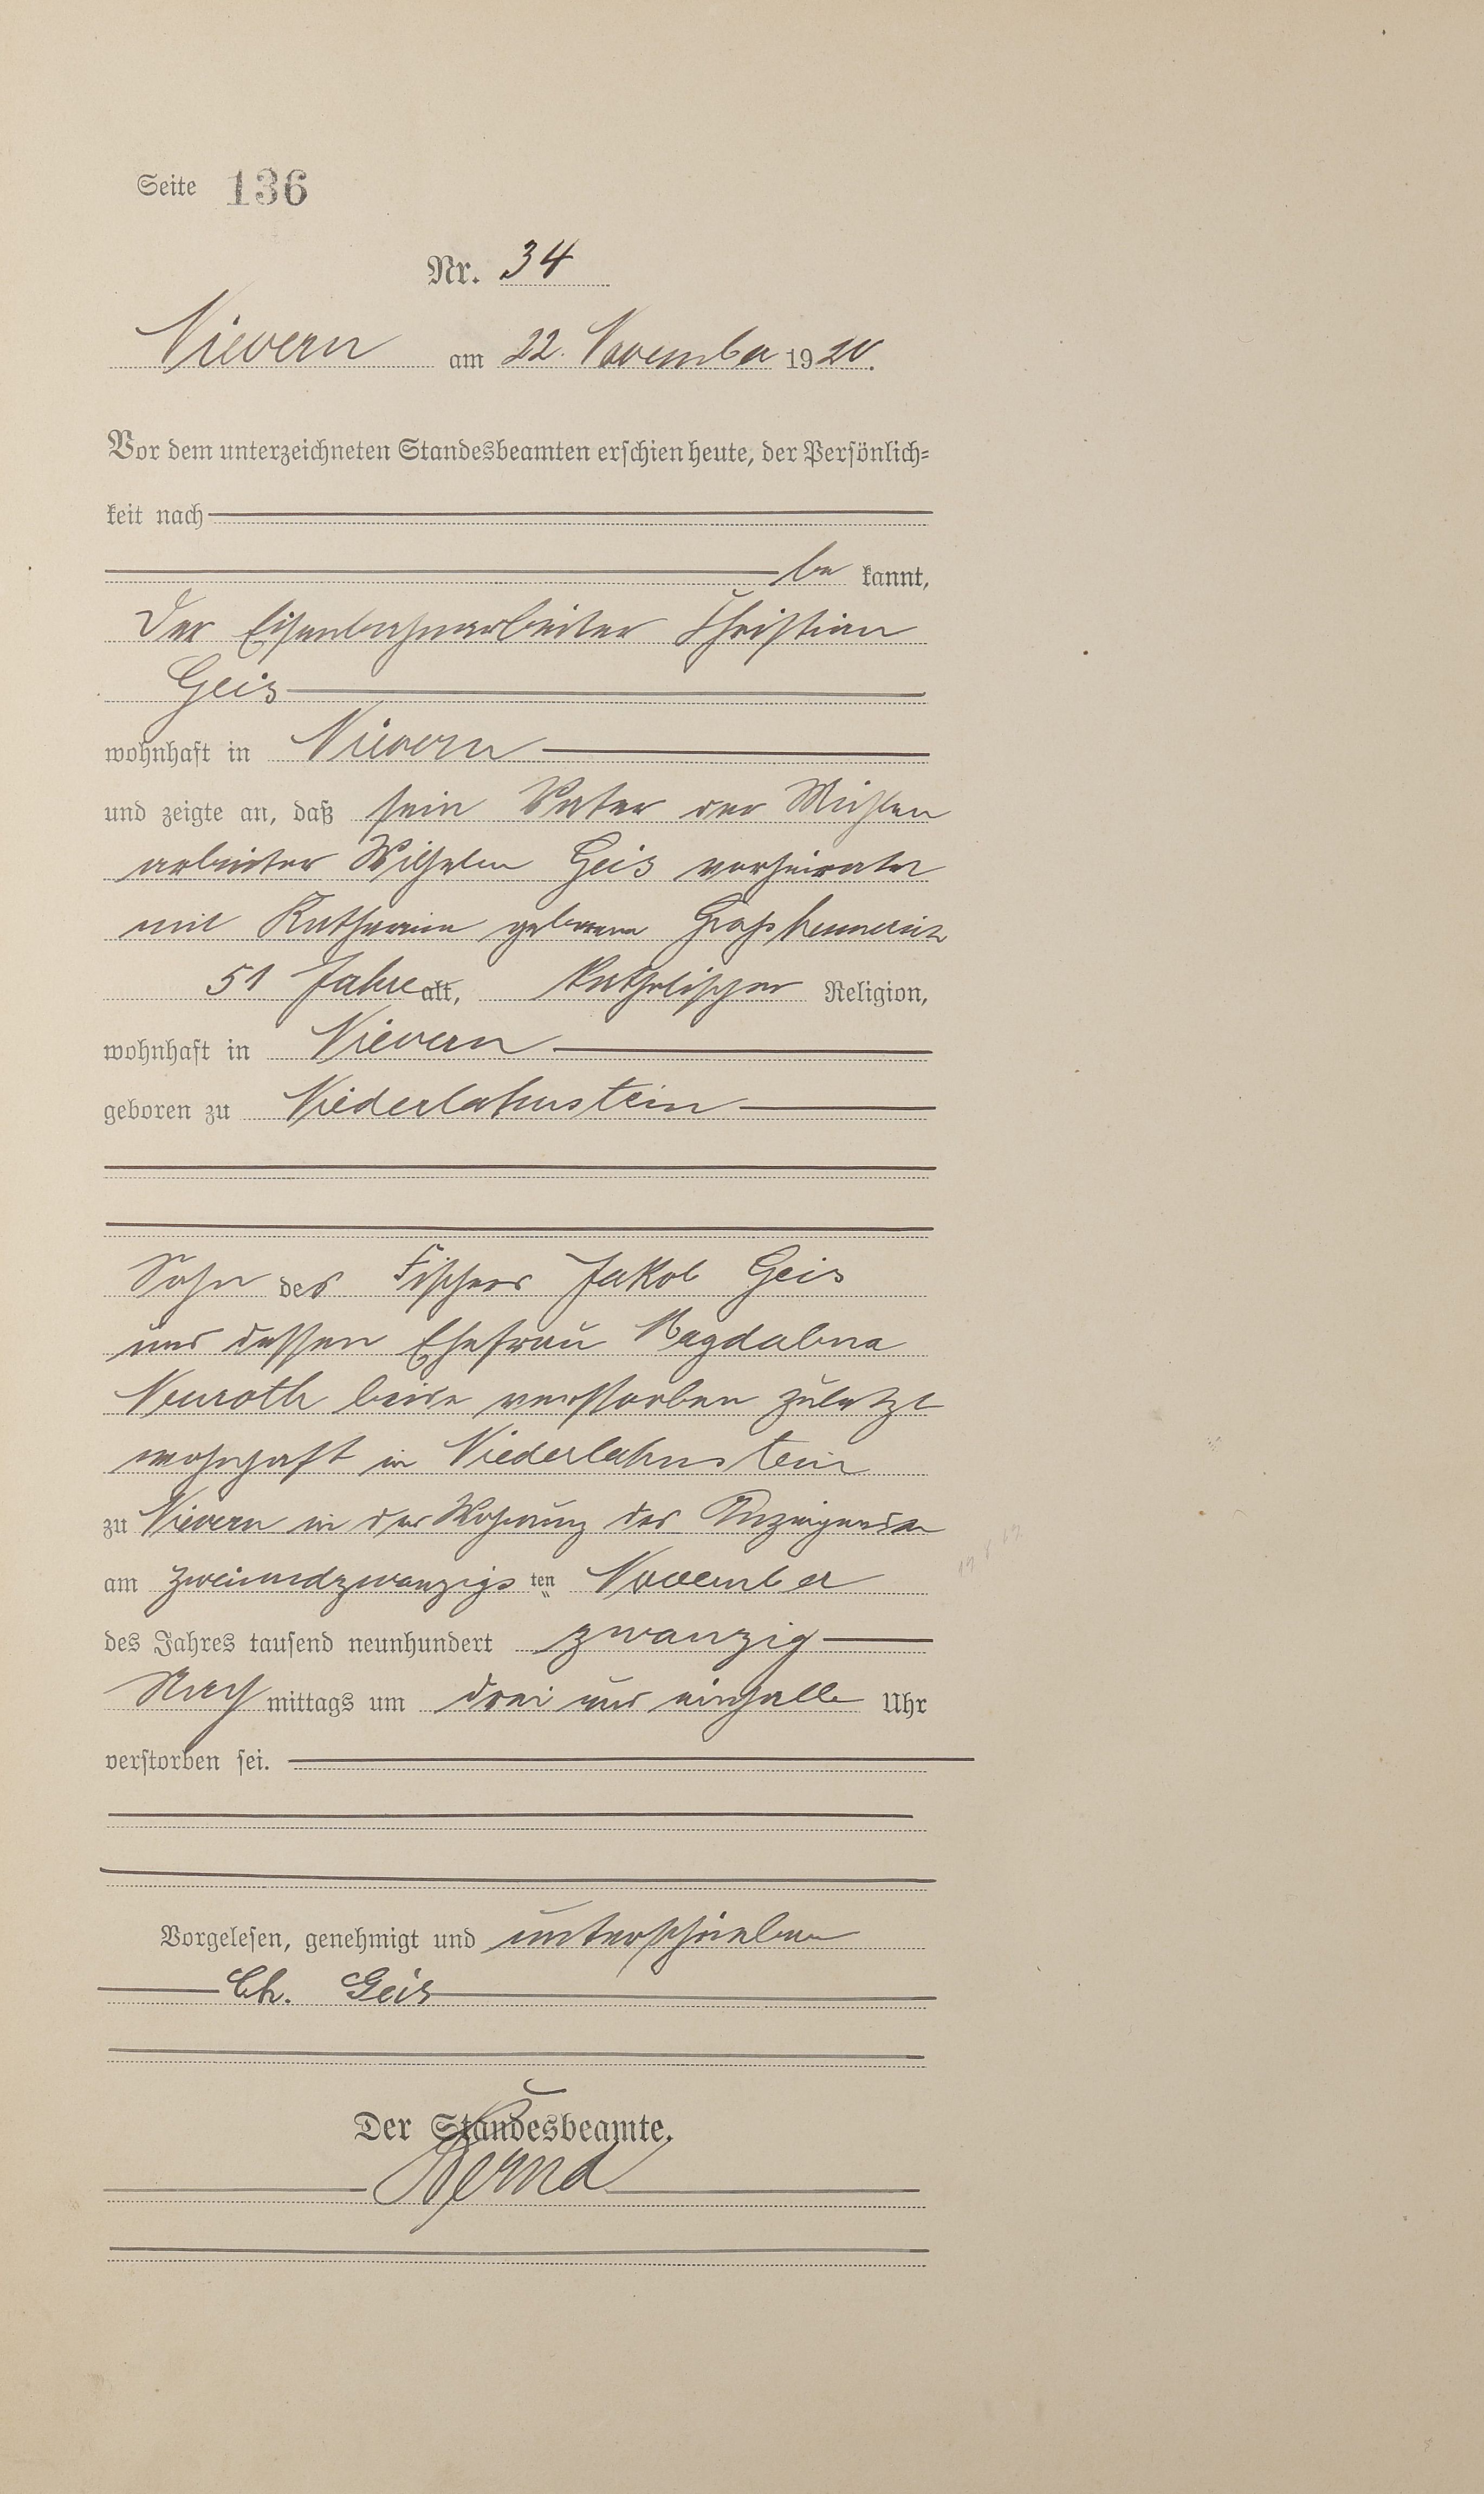 Seite 136
Nr. 34
Nievern am 22. November 1920.
Vor dem unterzeichneten Standesbeamten erschien heute, der Persönlich=
keit nach
be kannt,
Der Eisenbahnarbeiter Christian
Geis
wohnhaft in Nievern
und zeigte an, daß sein Vater der
arbeiter Wilhelm Geis verheiratet
mit Katharina geborene
51 Jahre alt, katholischer Religion,
wohnhaft in Nievern
geboren zu Niederlahnstein
Sohn des Fischers Jakob Geis
und dessen Ehefrau Magdalena
Neuroth beide verstorben zuletzt
wohnhaft in Niederlahnstein
zu Nievern in der Wohnung des Anzeigenden
am zweiundzwanzigs ten November
des Jahres tausend neunhundert zwanzig
Nach mittags um drei und einhalb Uhr
verstorben sei.
Vorgelesen, genehmigt und unterschrieben
Ch. Geis
Der Standesbeamte.